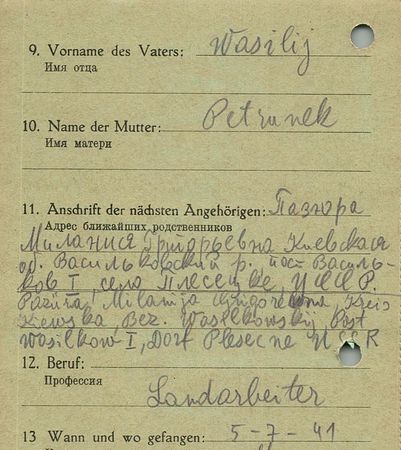 9. Vorname des Vaters: Wasilij
Имя отца
10. Name der Mutter: Petrunek
Имя матери
11. Anschrift der nächsten Angehörigen: Пазюра
Адрес ближайших родственников
Милания Григорьевна Киевская
об. Васильковский р. пост Василь-
ков I, село Плесецке, УССР.
Paziura Milanija Grigorewna, Kreis
Kiewska, Bez. Wasilkowskij Post
Wasilkow I, Dorf Plesecne U S R
12. Beruf:
Профессия
Landarbeiter
13 Wann und wo gefangen: 5-7-41